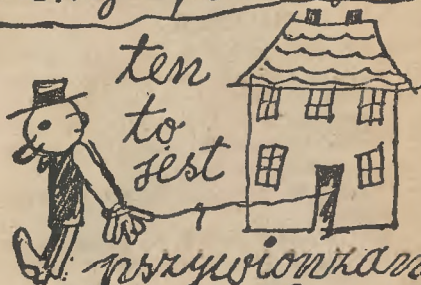 ten
to
jest
pszywionzan